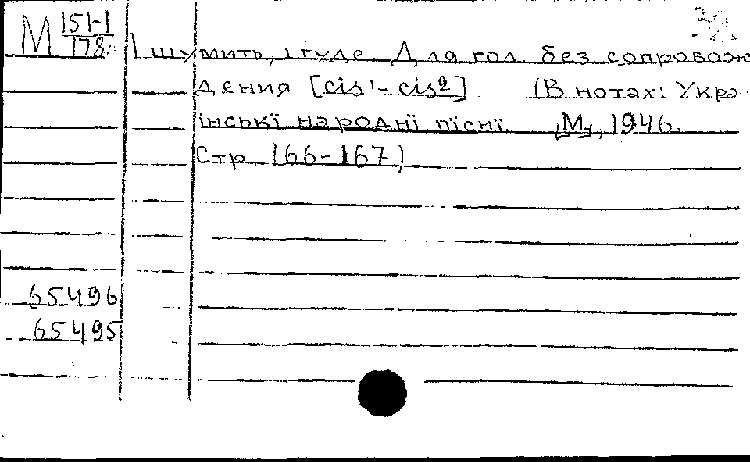 М 151-1
178
І шумить, і гуде Для гол без сопровож
дения [cis¹- cis²]. (В нотах: Укра
їнські народні пісні. М., 1946.
Стр 166-167)
65496
65495